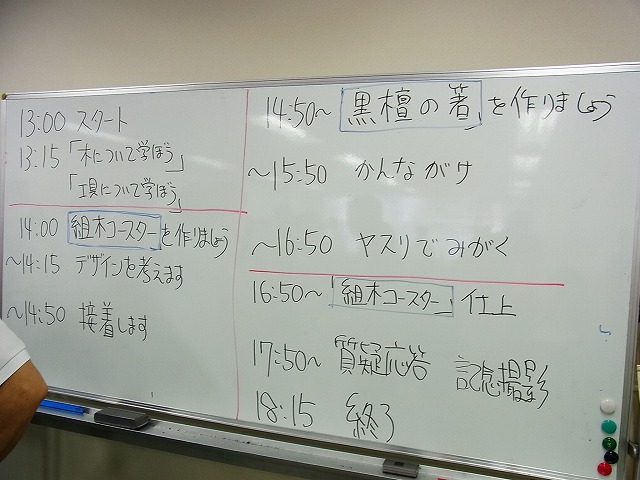 13:00 スタート
13:15 「木について学ぼう」
「工具について学ぼう」
14:00 組木コースターを作りましょう
～14:15 デザインを考えます
～14:50 接着します
14:50～ 「黒檀の箸」を作りましょう
～15:50 かんながけ
～16:50 ヤスリでみがく
16:50～ 「組木コースター」仕上
17:50～ 質疑応答 記念撮影
18:15 終了